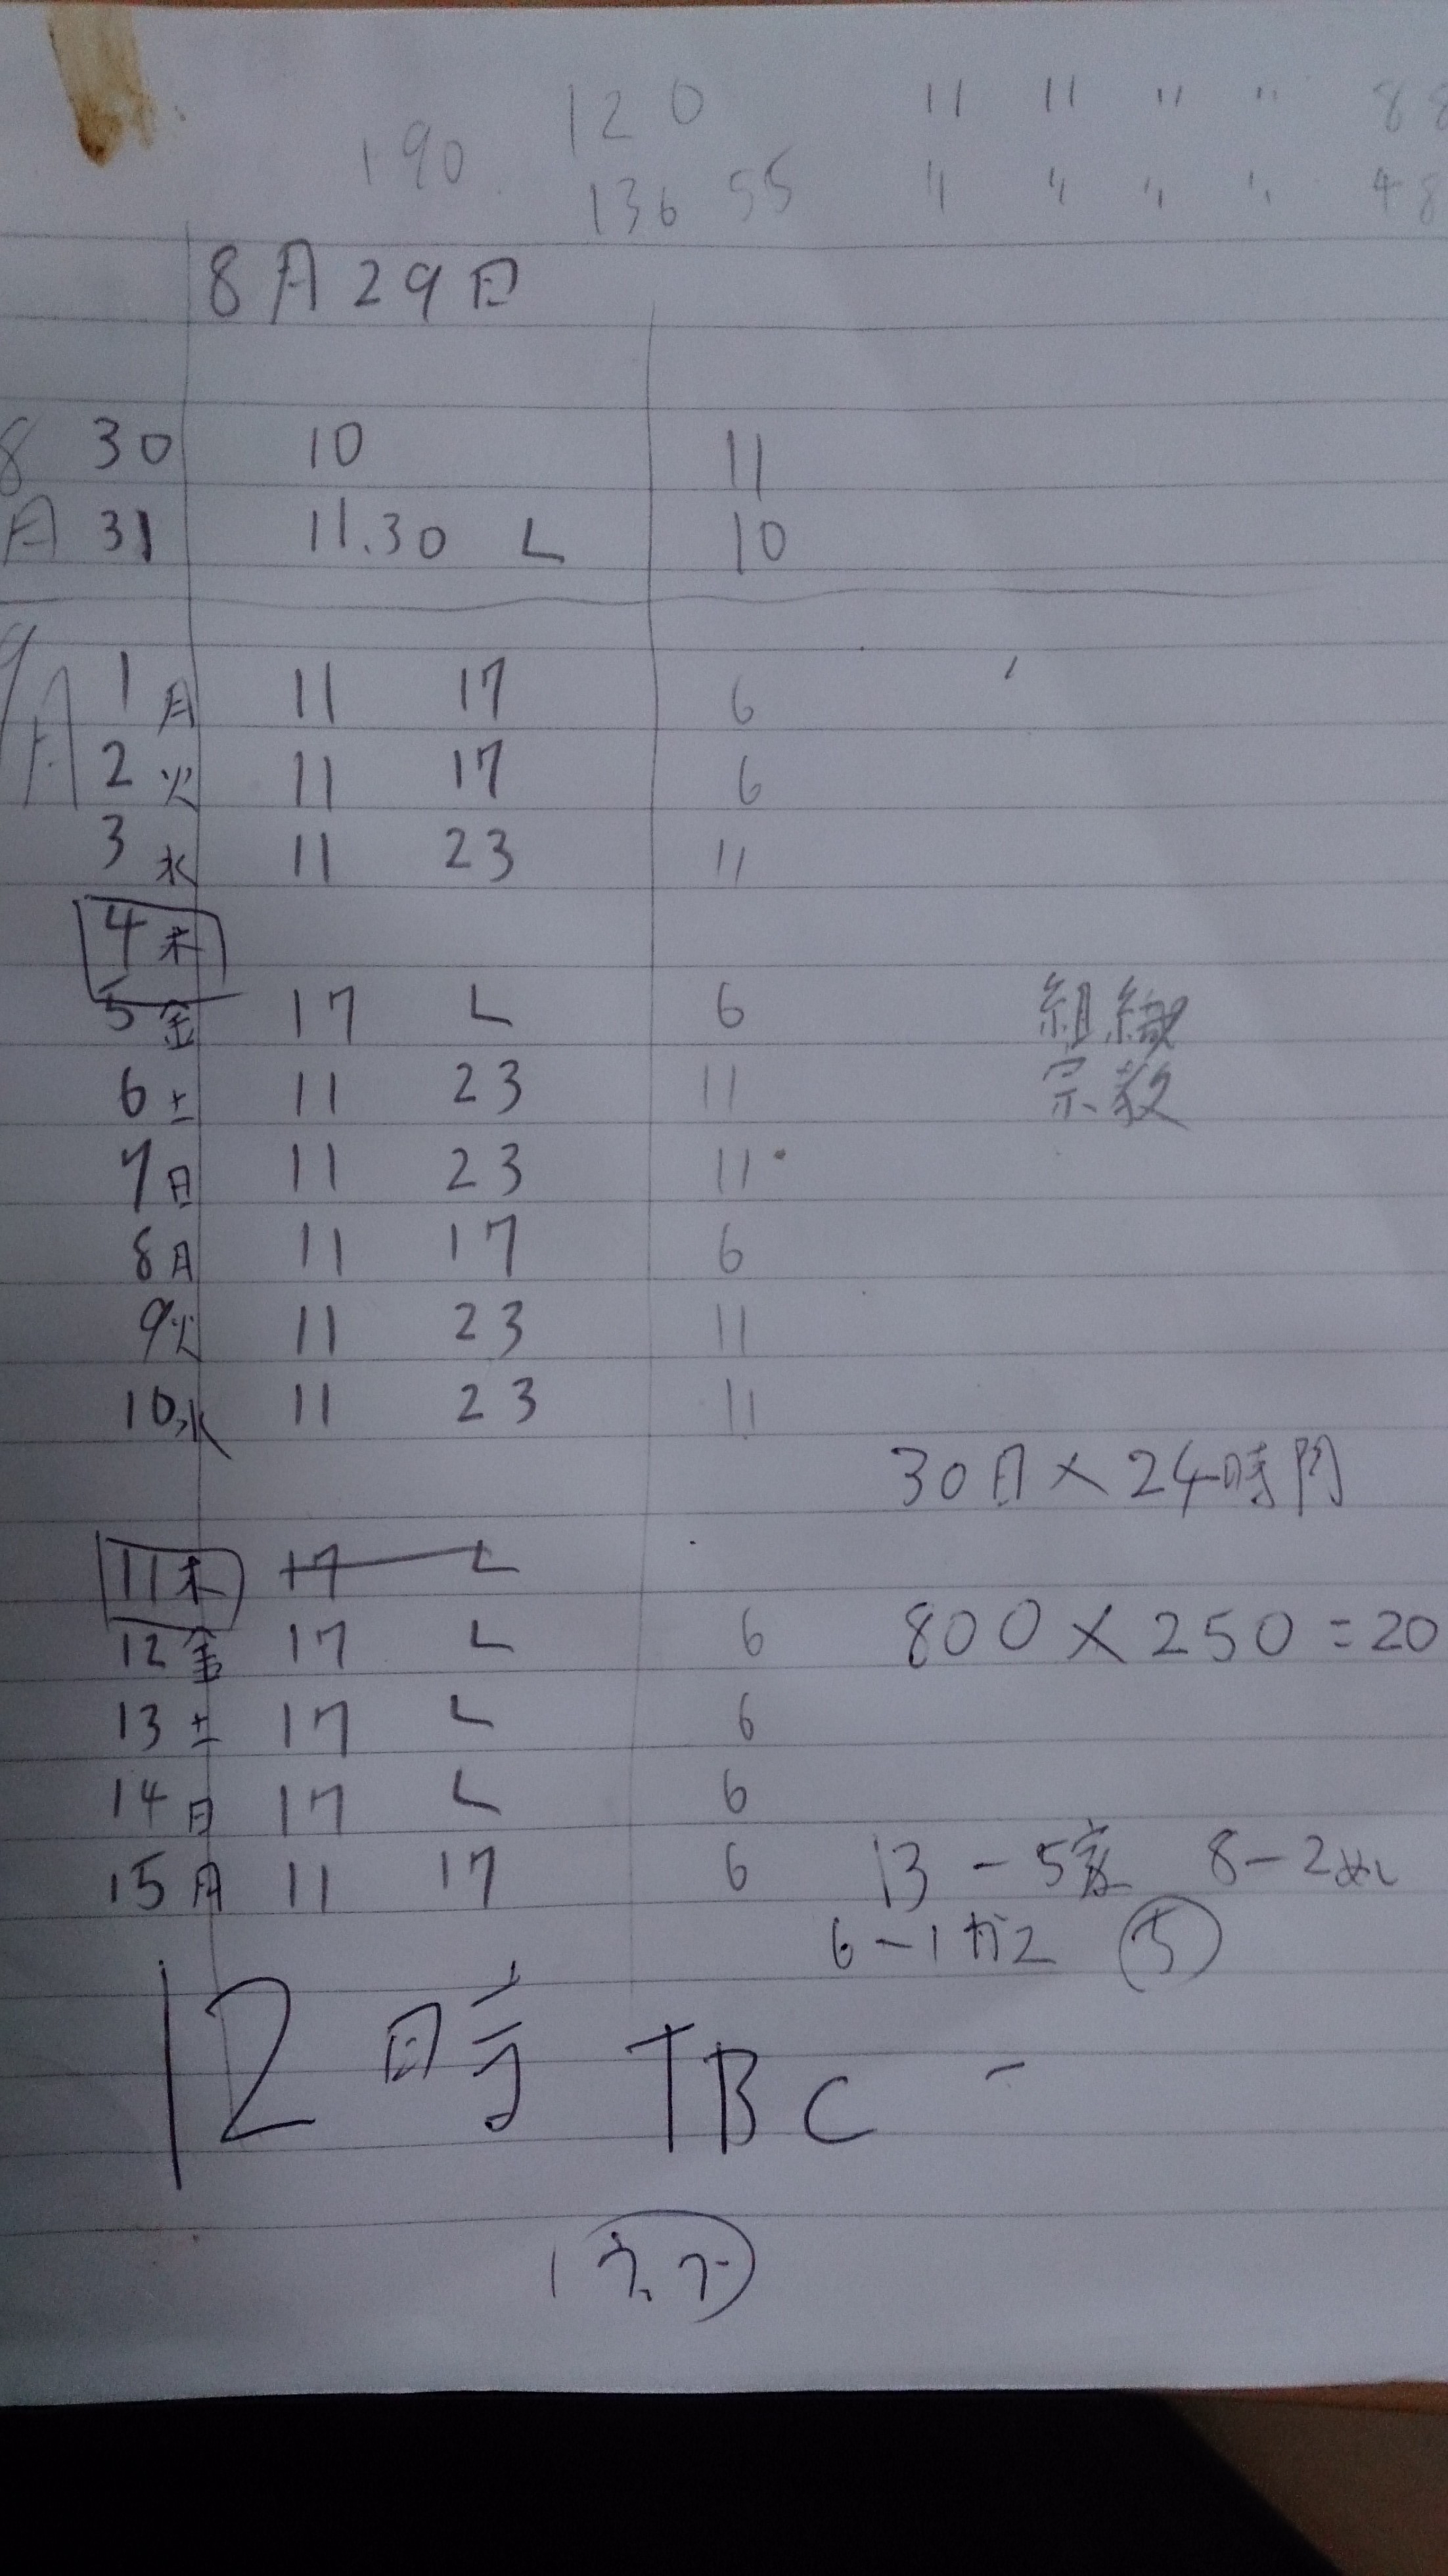 120 〃 〃 〃 〃 88
190
136 55 〃 〃 〃 〃 48
8月29日
8月
30 10 11
31 11.30 L 10
9月
1月 11 17 6
2火 11 17 6
3水 11 23 11
4木
5金 17 L 6 組織
6土 11 23 11 宗教
7日 11 23 11
8月 11 17 6
9火 11 23 11
10水 11 23 11
30日×24時間
11木 17 L
12金 17 L 6 800×250=20
13土 17 L 6
14日 17 L 6
15月 11 17 6 13-5 8-2
6-1 5
12時 TBC